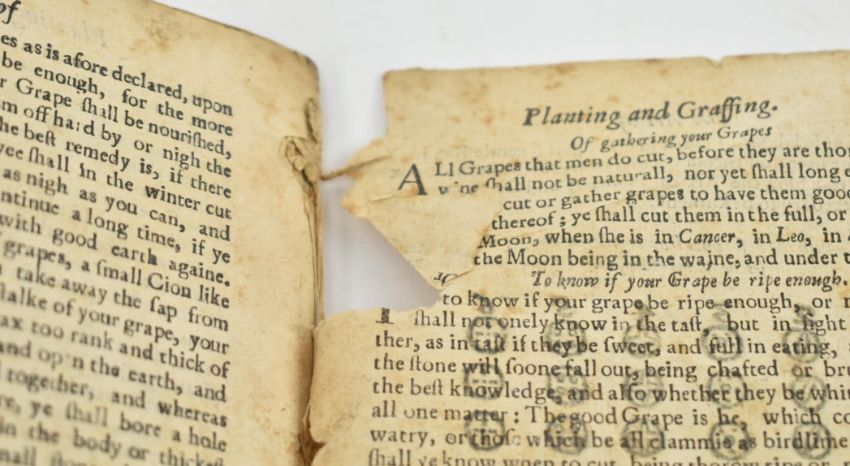 of
es as is afore declared, upon
be enough, for the more
r Grape ſhall be nouriſhed,
m off hard by or nigh the
he beſt remedy is, if there
yee ſhall in the winter cut
as nigh as you can, and
ntinue a long time, if ye
with good earth againe.
grapes, a ſmall Cion like
take away the ſap from
ſtalke of your grape, your
ax too rank and thick of
and op'n the earth, and
together, and whereas
re, ye ſhall bore a hole
in the body or thickeſt
Planting and Graffing.
Of gathering your Grapes
ALl Grapes that men do cut, before they are thor
wine ſhall not be naturall, nor yet ſhall long e
cut or gather grapes to have them good
thereof; ye ſhall cut them in the full, or
Moon, when ſhe is in Cancer, in Leo, in
the Moon being in the wajne, and under t
To know if your Grape be ripe enough.
to know if your grape be ripe enough, or n
ſhall not onely know in the taſt, but in ſight
ther, as in taſt if they be ſweet, and full in eating,
the ſtone will ſoone fall out, being chafted or bru
the beſt knowledge, and alſo whether they be whit
all one matter: The good Grape is he, which co
watry, or thoſe which be all clammie as birdlime
ſhall ye know when to cut, being thorow ripe or